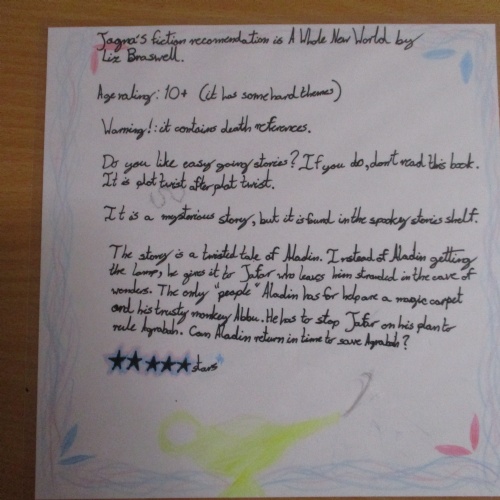 Jagna's fiction recomendation is A Whole New World by
Liz Braswell.
Age rating: 10+ (it has some hard themes)
Warning!: it contains death references.
Do you like easy going stories? If you do, don't read this book.
It is plot twist after plot twist.
It is a mysterious story, but it is found in the spookey stories shelf.
The storey is a twisted tale of Aladin. Instead of Aladin getting
the lamp, he gives it to Jafar who leaves him stranded in the cave of
wonders. The only "people" Aladin has for help are a magic carpet
and his trusty monkey Abbu. He has to stop Jafar on his plan to
rule Agrabah. Can Aladin return in time to save Agrabah?
★★★★★ stars